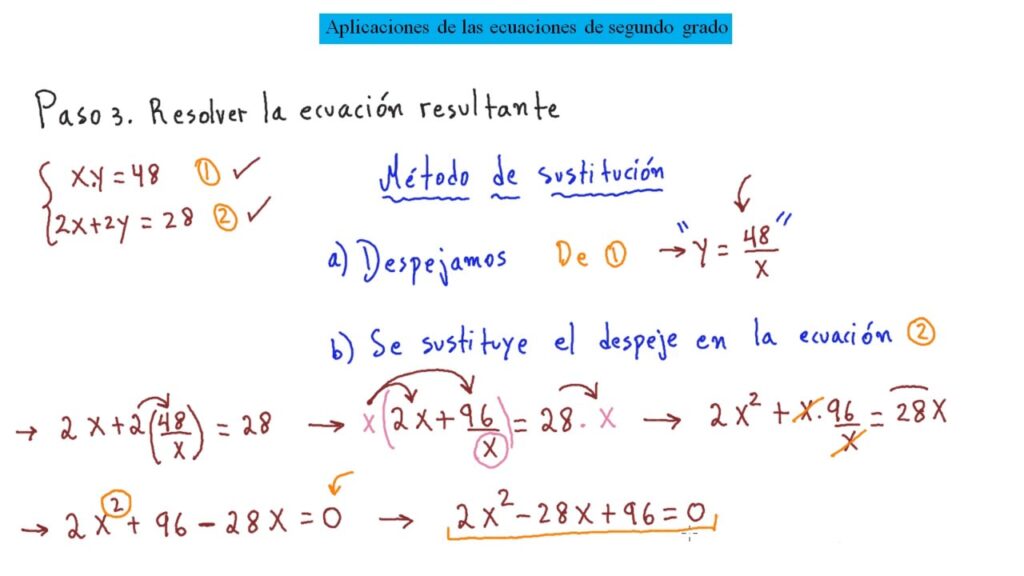 Aplicaciones de las ecuaciones de segundo grado
Paso 3. Resolver la ecuación resultante
{ x.y = 48 ① ✓
2x+2y = 28 ② ✓
Método de sustitución
a) Despejamos De ① → "y = 48/x"
b) Se sustituye el despeje en la ecuación ②
→ 2x+2(48/x) = 28 → x(2x+96/x) = 28·x → 2x² + x·96/x = 28x
→ 2x² + 96 - 28x = 0 → 2x² - 28x + 96 = 0